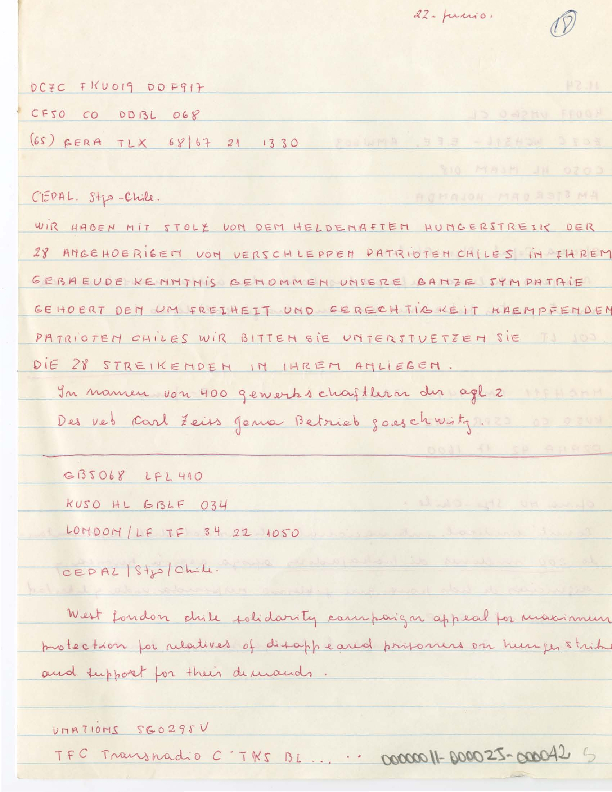 22 - junio.
18
DCZC FKU019 DDF917
CF50 CO DDBL 068
(65) GERA TLX 68/67 21 1330
CEPAL. Stgo-Chile.
WIR HABEN MIT STOLZ VON DEM HELDENHAFTEN HUNGERSTREIK DER
28 ANGEHOERIGEN VON VERSCHLEPPEN PATRIOTEN CHILES IN IHREM
GEBAEUDE KENNTNIS GENOMMEN UNSERE GANZE SYMPATHIE
GEHOERT DEN UM FREIHEIT UND GERECHTIGKEIT KAEMPFENDEN
PATRIOTEN CHILES WIR BITTEN SIE UNTERSTUETZEN SIE
DIE 28 STREIKENDEN IN IHREM ANLIEGEN.
In namen von 400 gewerkschaftlern der agl 2
Des veb Carl Zeiss Jena Betrieb goeschwitz
GB5068 LFL410
KUSO HL GBLF 034
LONDON/LF TF 34 22 1050
CEPAL/Stgo/Chile.
West London chile solidarity campaign appeal for maximum
protection for relatives of disappeared prisoners on hunger strike
and support for their demands.
UNATIONS SGO295V
TFC Transradio C TKS BL ... ..
0000011-000025-000042 5